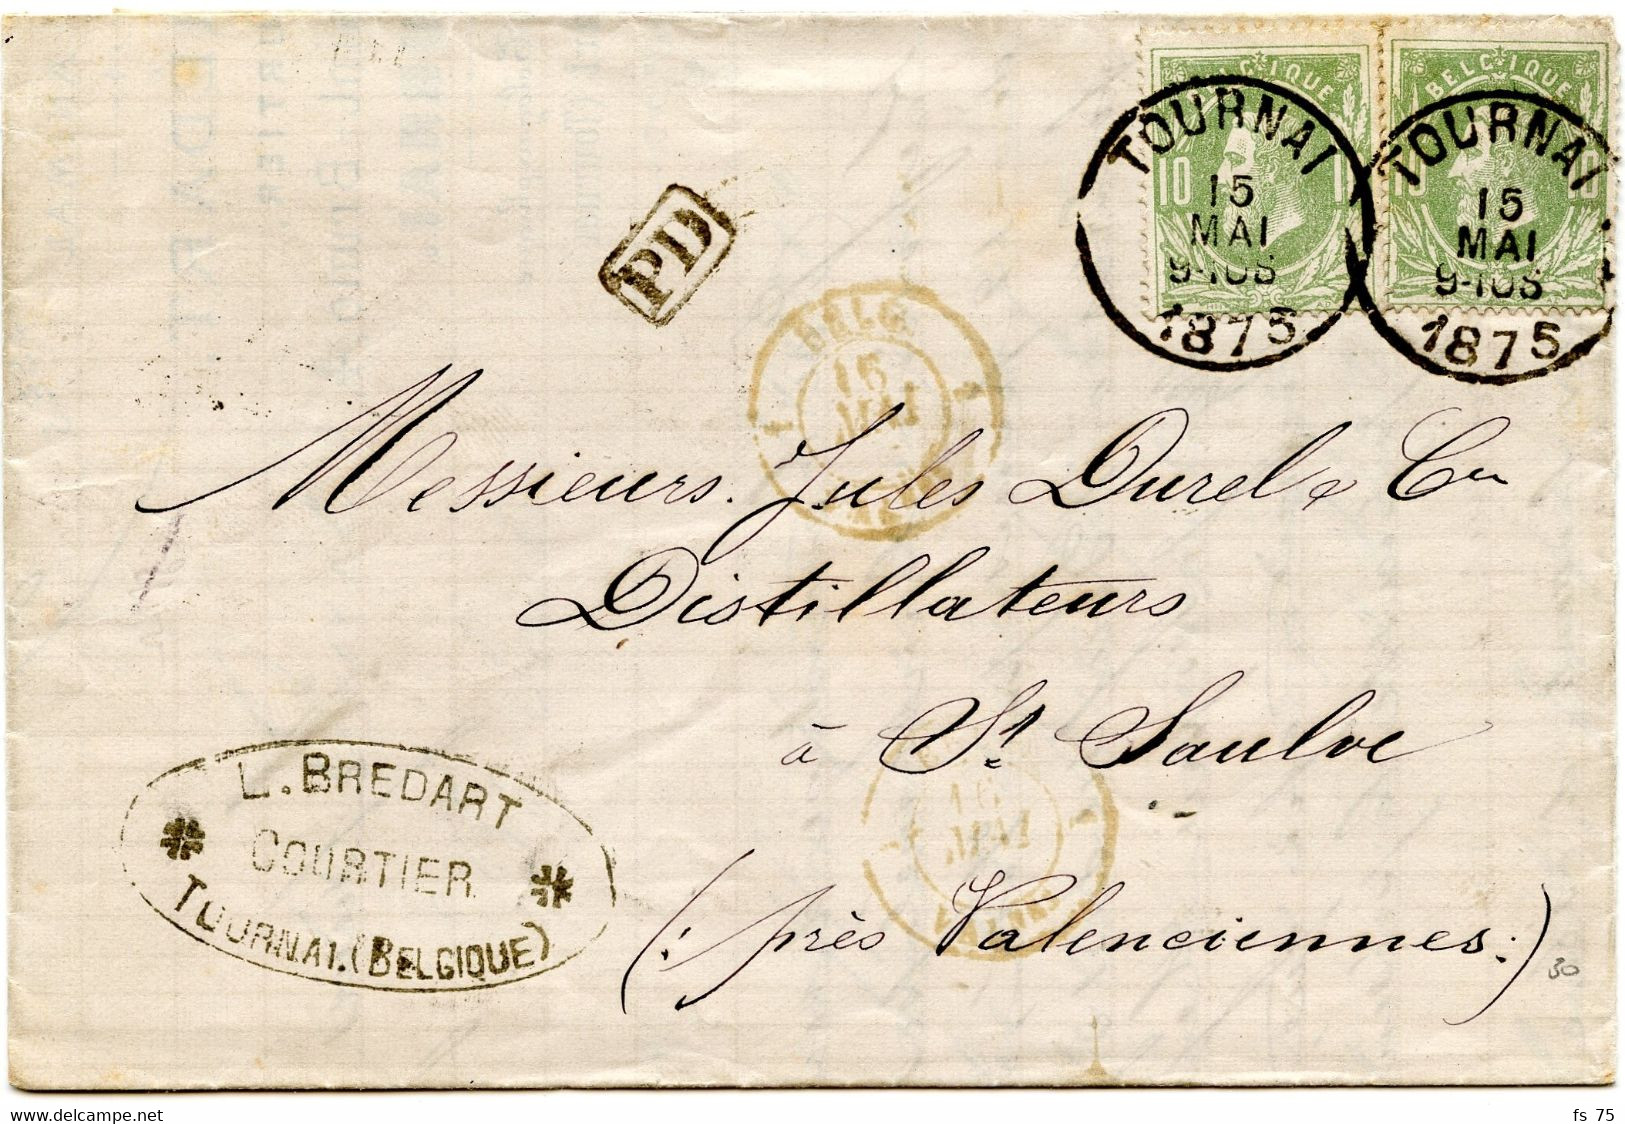 BELGIQUE
BELGIQUE
10
10
10
TOURNAI
15
MAI
9-10S
1875
TOURNAI
15
MAI
9-10S
1875
PD
BELG
15
MAI
Messieurs. Jules Durel & Cie
Distillateurs
à St Saulve
(: près Valenciennes :)
16
MAI
L. BREDART
COURTIER
TOURNAI. (BELGIQUE)
30
www.delcampe.net
fs 75